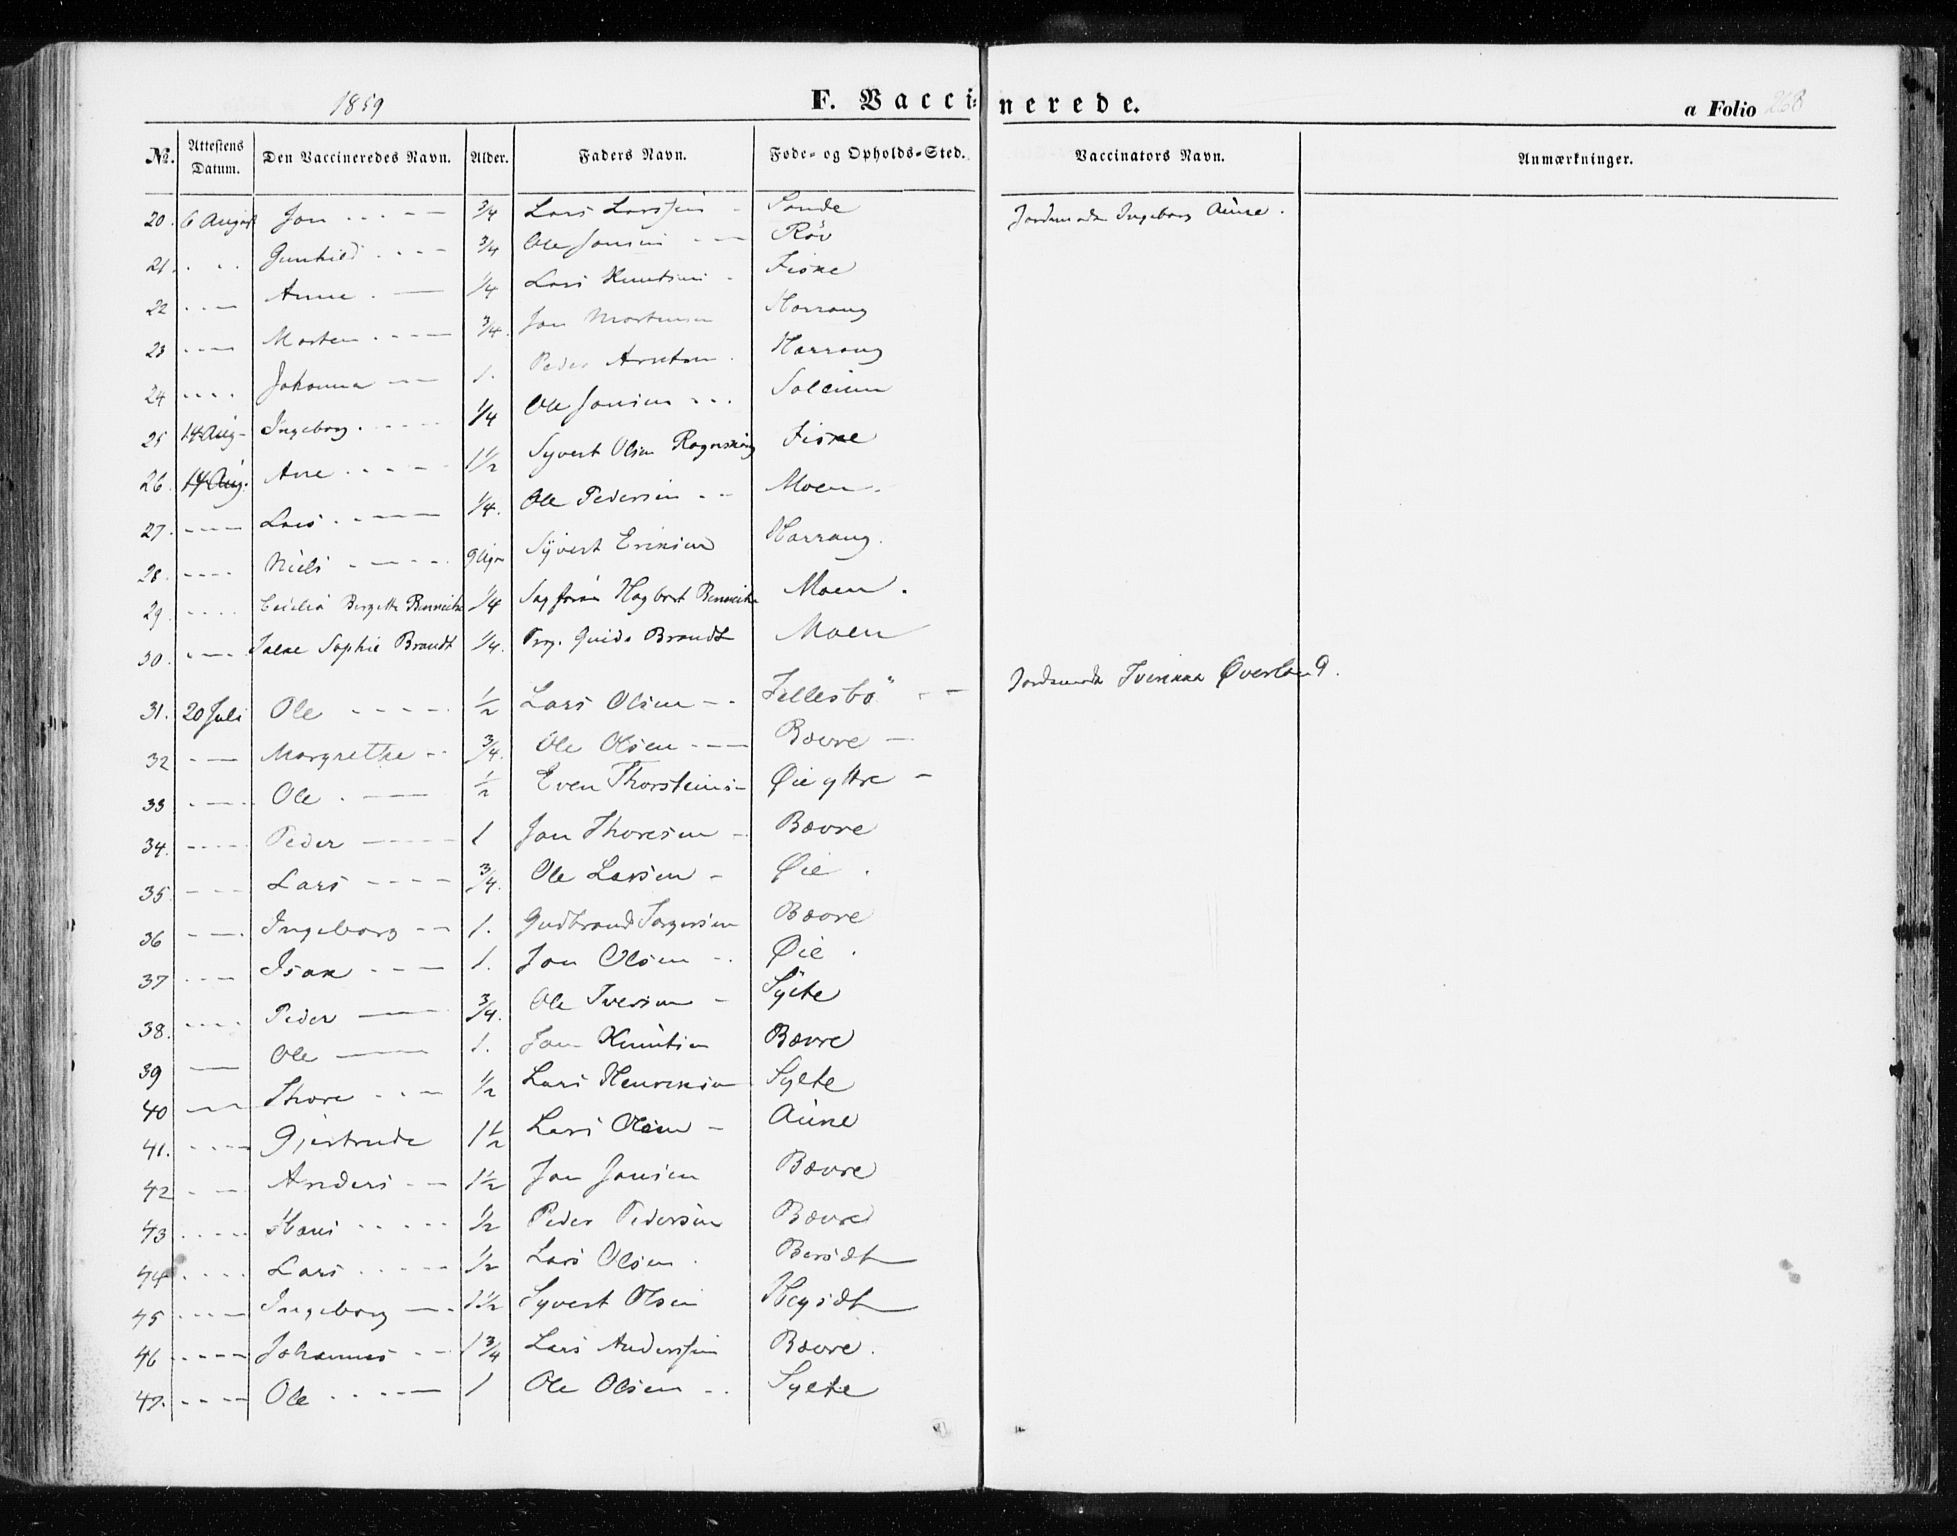 1859 F. Vaccinerede. a Folio 268
No. Attestens Datum. Den Vaccineredes Navn. Alder. Faders Navn. Føde- og Opholds-Sted. Vaccinators Navn. Anmærkninger.
20. 6 August Jon 3/4 Lars Larssen Sande Jordemoder Ingeborg Aune.
21. Gunhild 3/4 Ole Jonsen Røv
22 Anne 1/4 Lars Knutsen Fiske
23 Morten 3/4. Jon Mortensen Harrang
24 Johanna 1. Peder Arntsen Harrang
25 14 Aug Ingeborg 1/4 Ole Jonsen
26. 14 Aug. Ane 1 1/2 Syvert Olsen Fiske
27. Lars 1/4. Ole Pedersen Moen
28. Niels Syvert Eriksen Harrang.
29. Birgitte 1/4 Moen.
30. Sophie Brandt 1/4. Guido Brandt Moen
31. 20 Juli Ole 1/2 Lars Olsen Fellesbø Jordemoder Øverland.
32 Margrethe 3/4. Ole Olsen Bævre
33 Ole 1/2 Even Thorstens Øie yttre
34. Peder 1 Jon Thoresen Bævre
35 Lars 3/4. Ole Larsen Øie.
36 Ingeborg 1. Gudbrand Torgersen Bævre
37 Isak 1. Jon Olsen Øie.
38. Peder 3/4. Ole Iversen Sylte
39 Ole 1. Jon Knutsen Bævre
40 Thore 1/2 Lars Henriksen Sylte
41. Gjertrude 1 1/2 Lars Olsen Aune
42 Anders 1 1/2 Jon Jonsen Bævre
43 Hans 1/2 Peder Pedersen Bævre
44 Lars 1/2 Lars Olsen.
45 Ingeborg 1 1/2 Syvert Olsen
46 Johannes 1 3/4 Lars Anderssen Bævre.
47. Ole 1 Ole Olsen Sylte